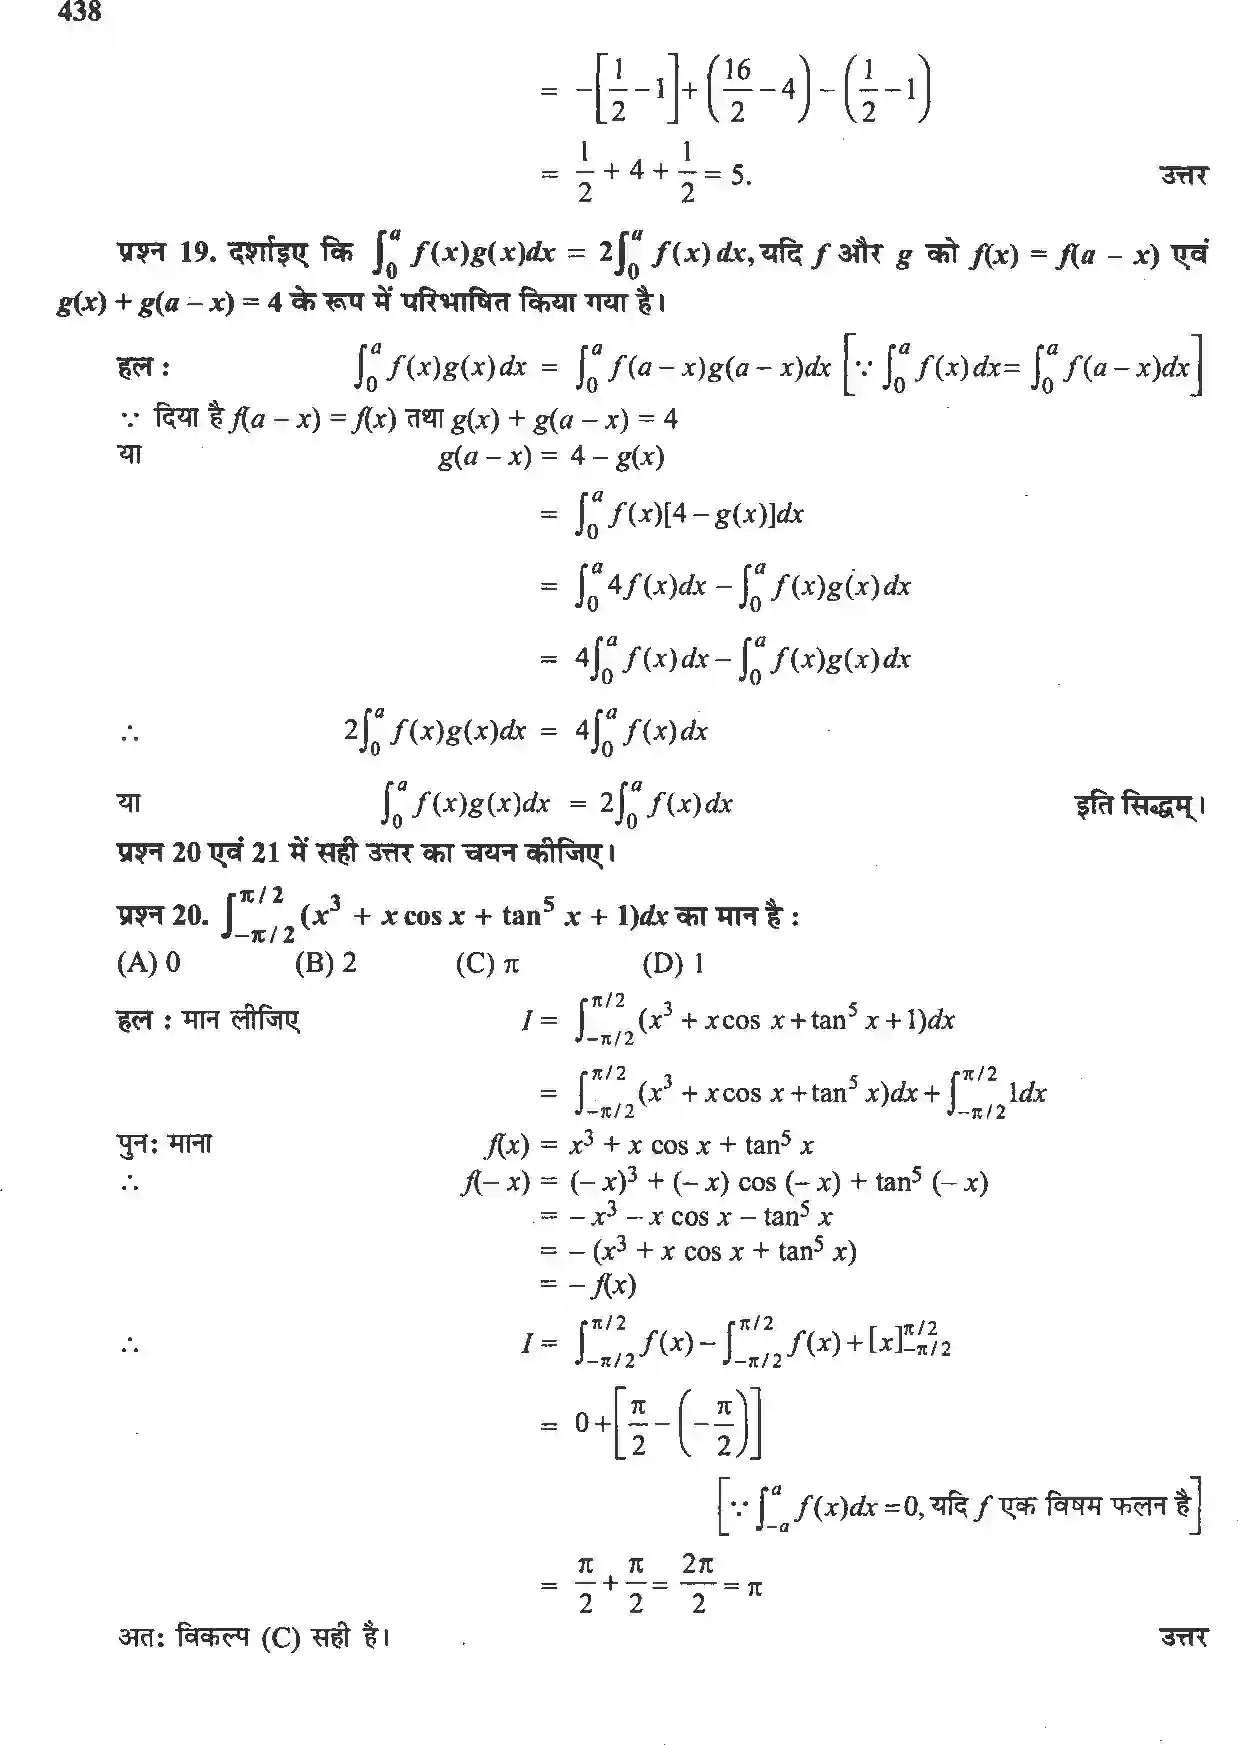 438
= -[1/2 - 1] + (16/2 - 4) - (1/2 - 1)
= 1/2 + 4 + 1/2 = 5. उत्तर
प्रश्न 19. दर्शाइए कि ∫₀ᵃ f(x)g(x)dx = 2∫₀ᵃ f(x) dx, यदि f और g को f(x) = f(a – x) एवं
g(x) + g(a – x) = 4 के रूप में परिभाषित किया गया है।
हल : ∫₀ᵃ f(x)g(x)dx = ∫₀ᵃ f(a – x)g(a – x)dx [∵ ∫₀ᵃ f(x)dx = ∫₀ᵃ f(a – x)dx]
∵ दिया है f(a – x) = f(x) तथा g(x) + g(a – x) = 4
या g(a – x) = 4 – g(x)
= ∫₀ᵃ f(x)[4 – g(x)]dx
= ∫₀ᵃ 4f(x)dx – ∫₀ᵃ f(x)g(x)dx
= 4∫₀ᵃ f(x)dx – ∫₀ᵃ f(x)g(x)dx
∴ 2∫₀ᵃ f(x)g(x)dx = 4∫₀ᵃ f(x)dx
या ∫₀ᵃ f(x)g(x)dx = 2∫₀ᵃ f(x)dx इति सिद्धम्।
प्रश्न 20 एवं 21 में सही उत्तर का चयन कीजिए।
प्रश्न 20. ∫_{–π/2}^{π/2} (x³ + x cos x + tan⁵ x + 1)dx का मान है :
(A) 0 (B) 2 (C) π (D) 1
हल : मान लीजिए I = ∫_{–π/2}^{π/2} (x³ + x cos x + tan⁵ x + 1)dx
= ∫_{–π/2}^{π/2} (x³ + x cos x + tan⁵ x)dx + ∫_{–π/2}^{π/2} 1dx
पुन: माना f(x) = x³ + x cos x + tan⁵ x
∴ f(– x) = (– x)³ + (– x) cos (– x) + tan⁵ (– x)
= – x³ – x cos x – tan⁵ x
= – (x³ + x cos x + tan⁵ x)
= – f(x)
∴ I = ∫_{–π/2}^{π/2} f(x) – ∫_{–π/2}^{π/2} f(x) + [x]_{–π/2}^{π/2}
= 0 + [π/2 – (–π/2)]
[∵ ∫_{–a}^{a} f(x)dx = 0, यदि f एक विषम फलन है]
= π/2 + π/2 = 2π/2 = π
अत: विकल्प (C) सही है। उत्तर